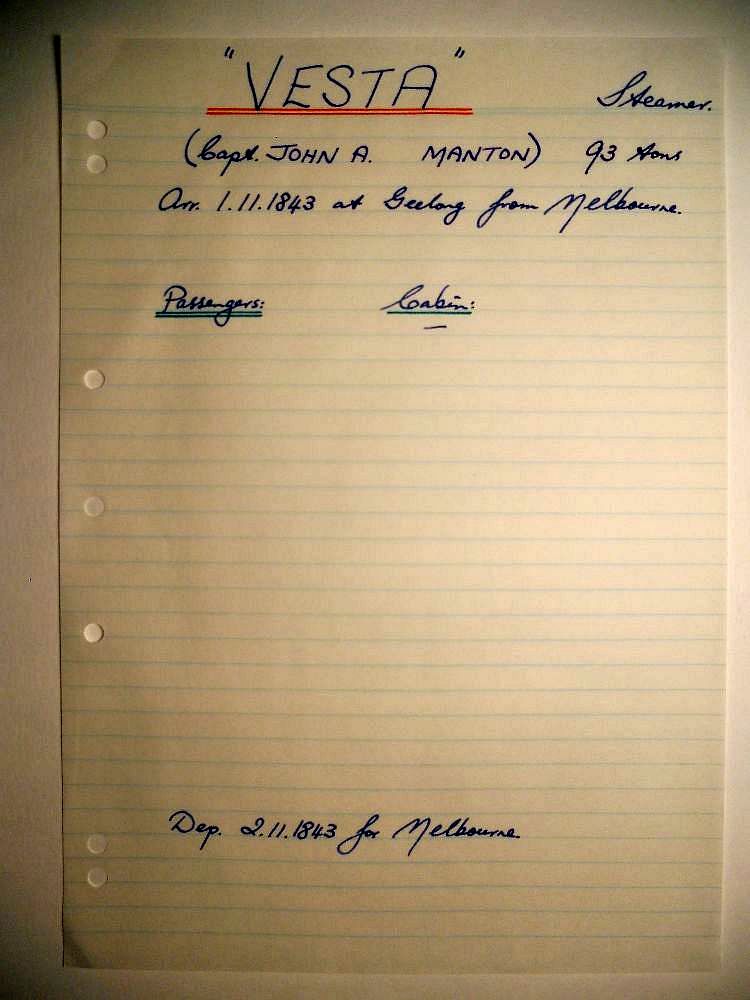 "VESTA" Steamer.
(Capt. JOHN A. MANTON) 93 tons
Arr. 1.11.1843 at Geelong from Melbourne.
Passengers: Cabin:
—
Dep. 2.11.1843 for Melbourne